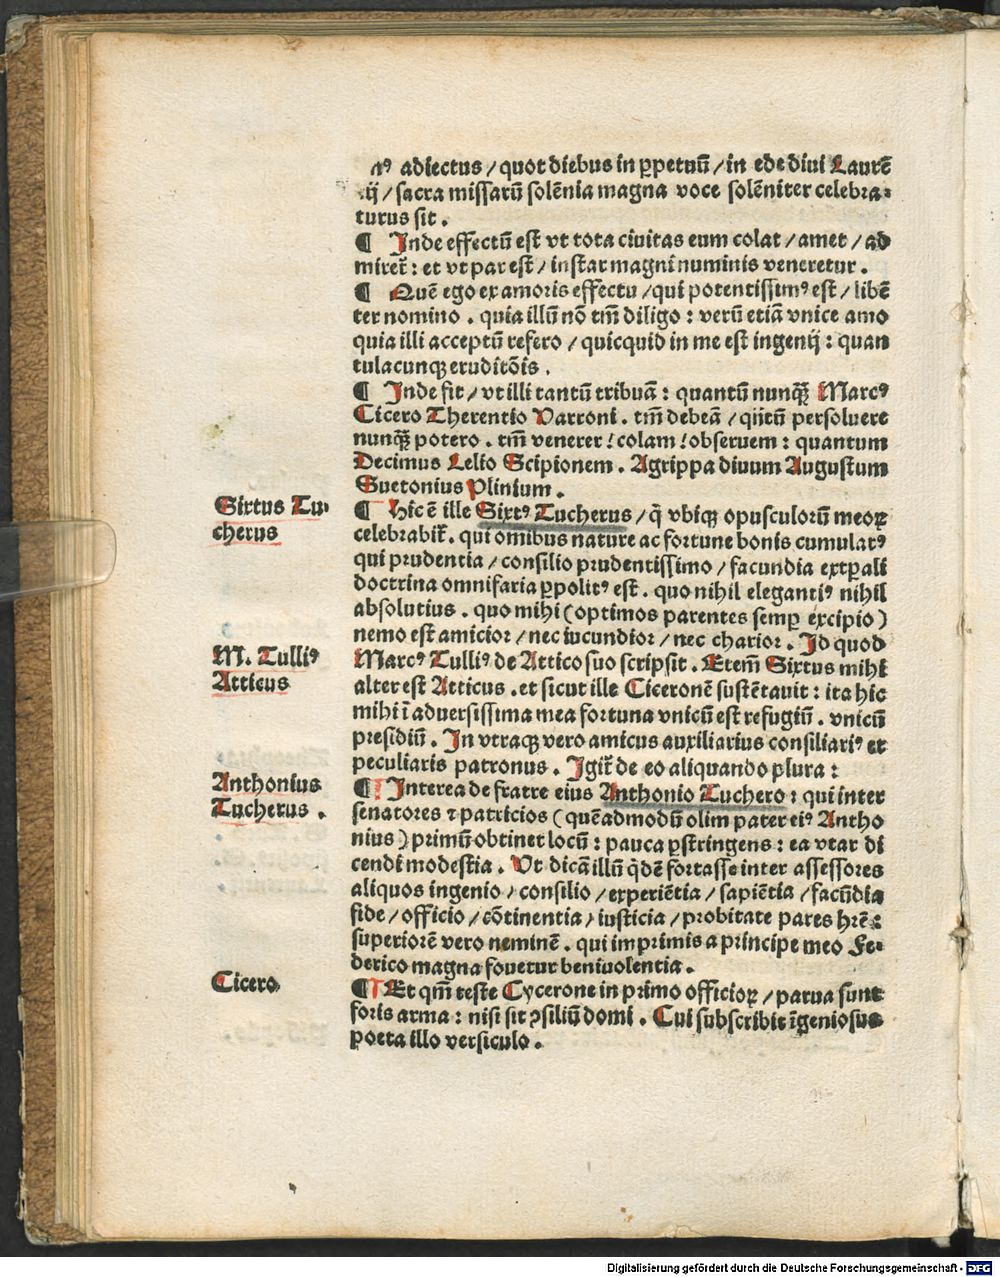 nꝰ adiectus / quot diebus in ꝑpetuū / in ede diui Laurē
ij / sacra missarū solēnia magna voce solēniter celebra⸗
turus sit .
¶ Inde effectū est vt tota ciuitas eum colat / amet / ad
miret᷑ : et vt par est / instar magni numinis veneretur .
¶ Quē ego ex amoris effectu / qui potentissimꝰ est / libē
ter nomino . quia illū nō tm̄ diligo : verū etiā vnice amo
quia illi acceptū refero / quicquid in me est ingenij : quan
tulacunqꝫ eruditōis .
¶ Inde fit / vt illi tantū tribuā : quantū nunqꝫ̄ Marcꝰ
Cicero Therentio Varroni . tm̄ debeā / qͥitū persoluere
nunqꝫ̄ potero . tm̄ venerer / colam / obseruem : quantum
Decimus Lelio Scipionem . Agrippa diuum Augustum
Suetonius Plinium .
Sixtus Tu⸗
cherus
¶ Hic ē ille Sixtꝰ Tucherus / q̄ vbiqꝫ opusculorū meoꝝ
celebrabit᷑ . qui omībus nature ac fortune bonis cumulatꝰ
qui prudentia / consilio prudentissimo / facundia extꝑali
doctrina omnifaria ꝑpolitꝰ est . quo nihil elegantiꝰ nihil
absolutius . quo mihi ( optimos parentes semꝑ excipio )
nemo est amicior / nec iucundior / nec charior . Id quod
M. Tulliꝰ
Atticus
Marcꝰ Tulliꝰ de Attico suo scripsit . Etem̄ Sixtus mihi
alter est Atticus . et sicut ille Ciceronē sustētauit : ita hic
mihi ī aduersissima mea fortuna vnicū est refugiū . vnicū
presidiū . In vtraqꝫ vero amicus auxiliarius consiliariꝰ et
peculiaris patronus . Igit᷑ de eo aliquando plura :
Anthonius
Tucherus .
¶ Interea de fratre eius Anthonio Tuchero : qui inter
senatores ⁊ patricios ( quēadmodū olim pater eiꝰ Antho
nius ) primū obtinet locū : pauca ꝑstringens : ea vtar di
cendi modestia . Vt dicā illū q̇dē fortasse inter assessores
aliquos ingenio / consilio / experiētia / sapiētia / facūdia
fide / officio / cōtinentia / iusticia / probitate pares hrē :
superiorē vero neminē . qui imprimis a principe meo Fe⸗
derico magna fouetur beniuolentia .
Cicero
¶ Et qm̄ teste Cycerone in primo officioꝝ / parua sunt
foris arma : nisi sit ꝯsiliū domi . Cui subscribit īgeniosus
poeta illo versiculo .
Digitalisierung gefördert durch die Deutsche Forschungsgemeinschaft - DFG